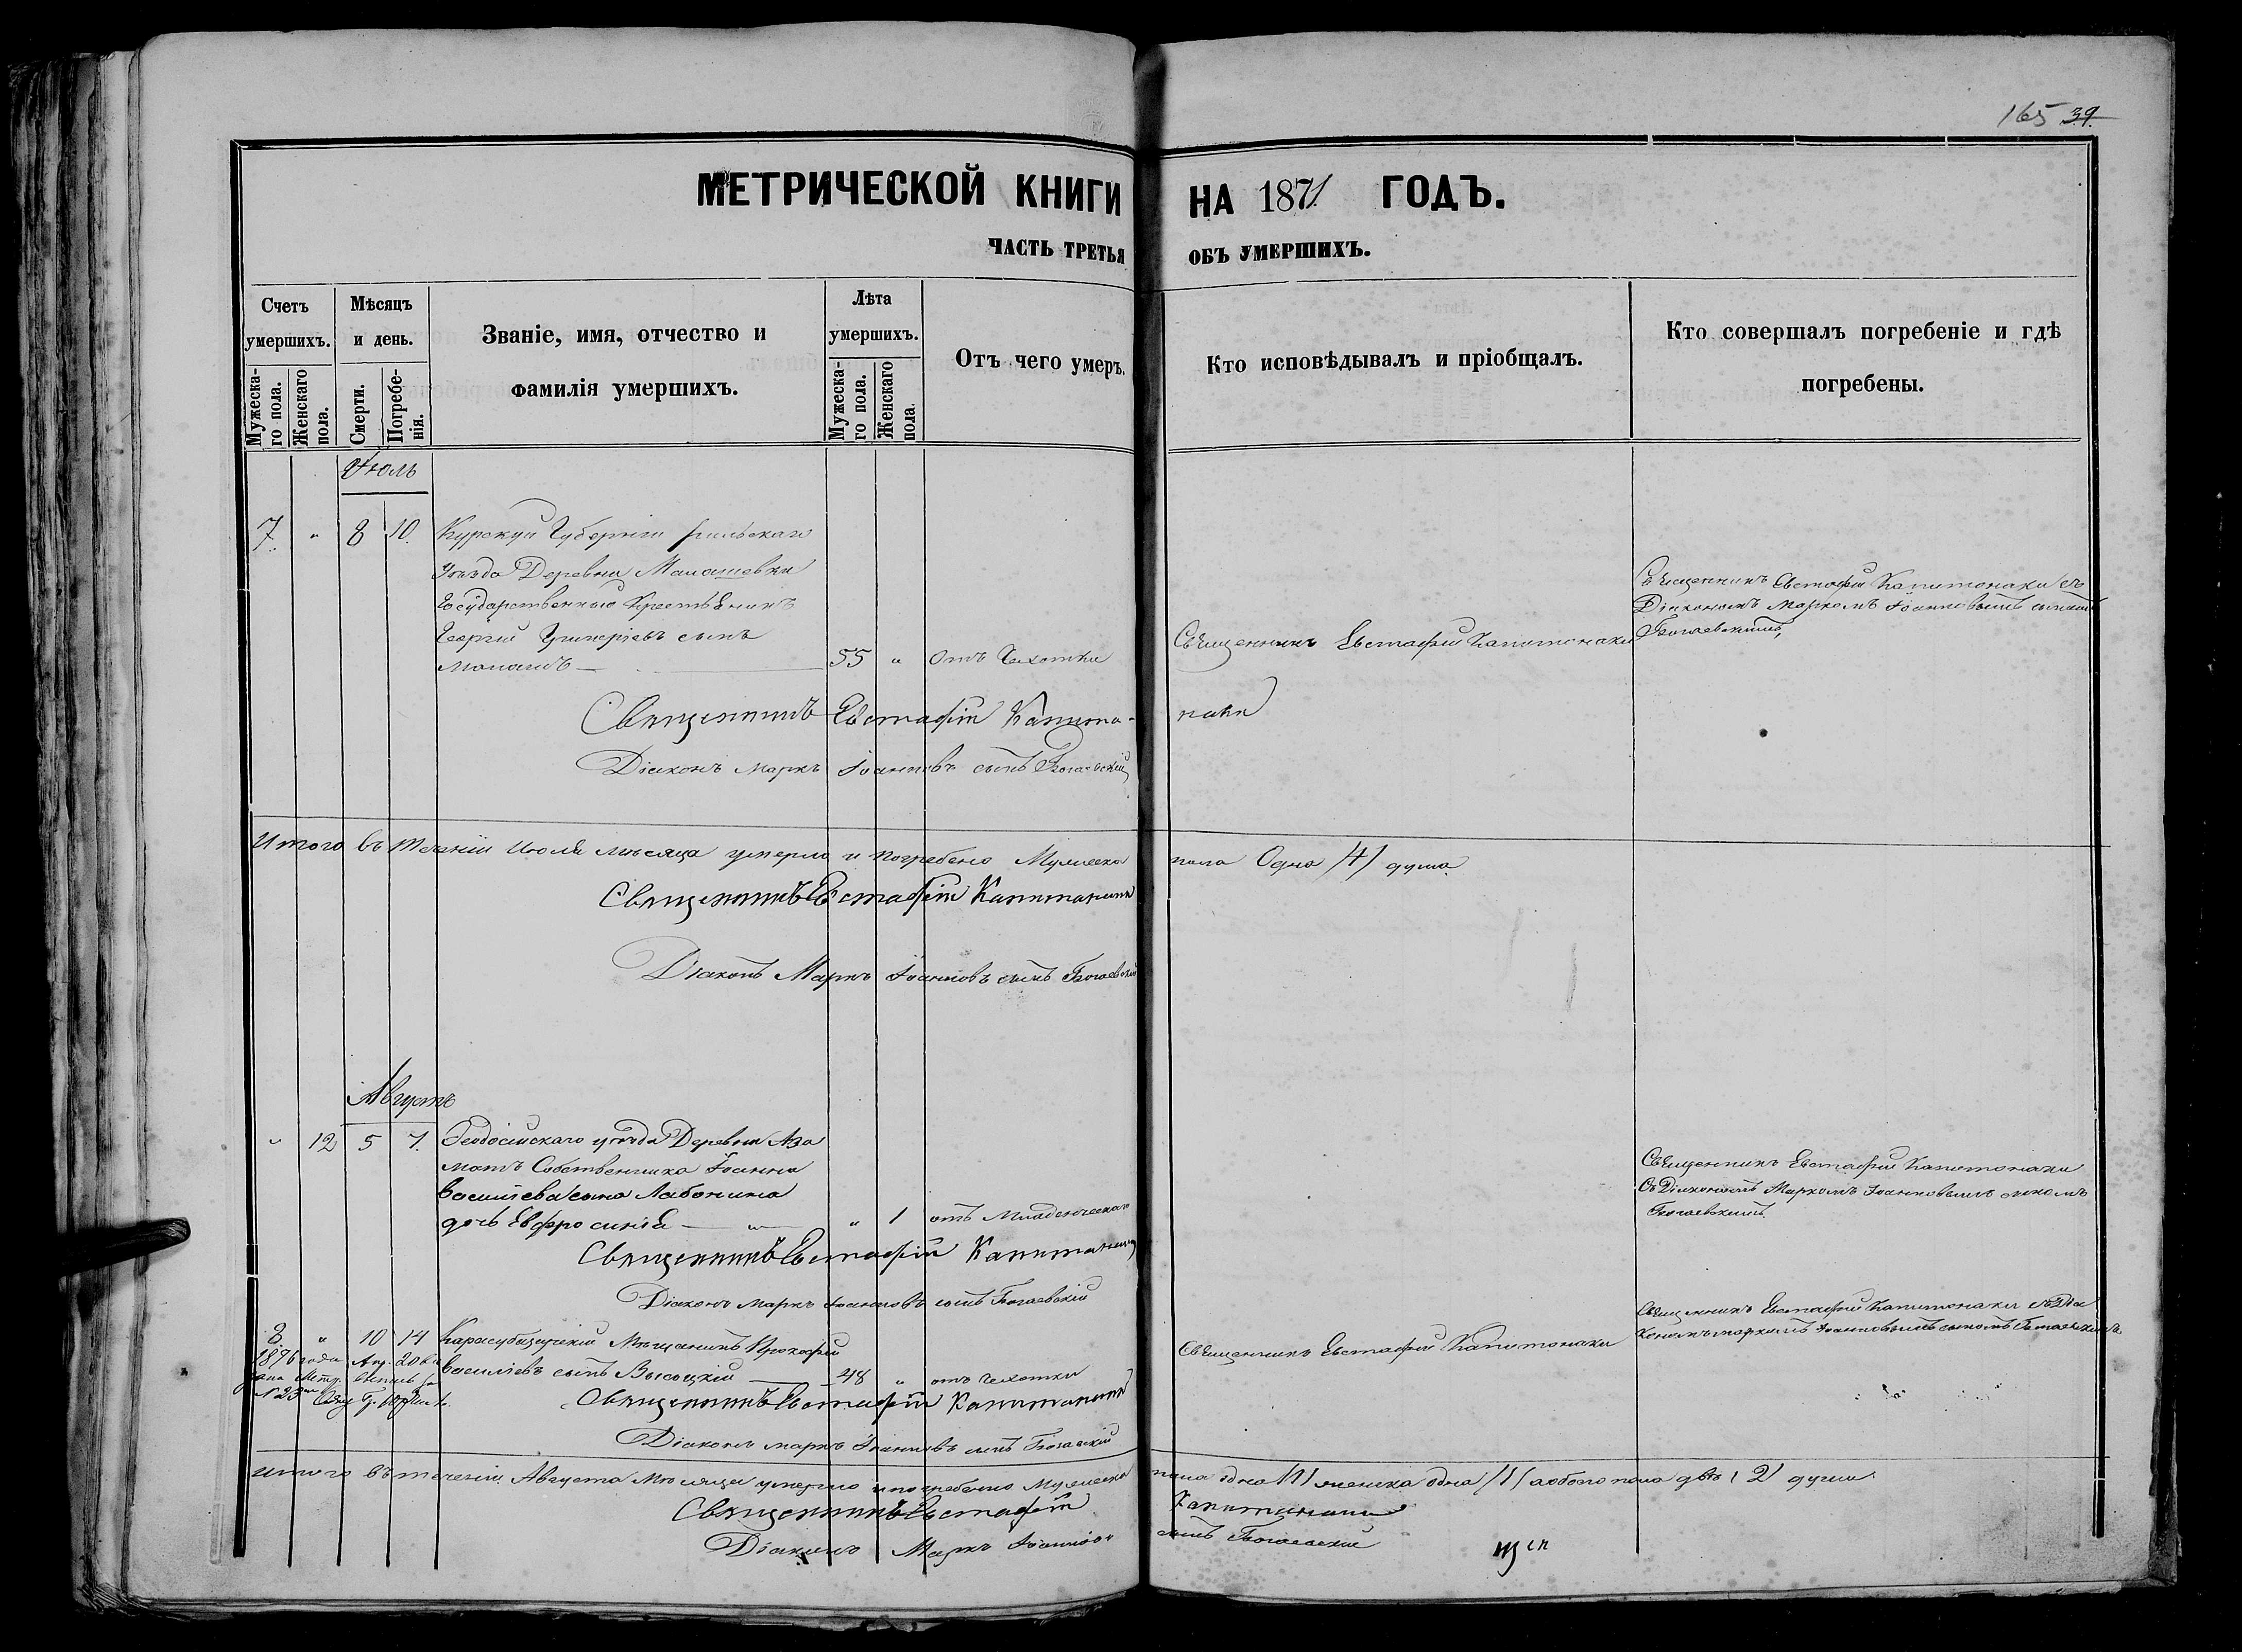 165 39
МЕТРИЧЕСКОЙ КНИГИ НА 1871 ГОДЪ.
ЧАСТЬ ТРЕТЬЯ ОБЪ УМЕРШИХЪ.
Счетъ умершихъ.
Мужескаго пола.
Женскаго пола.
Мѣсяцъ и день.
Смерти.
Погребенія.
Званіе, имя, отчество и
фамилія умершихъ.
Лѣта умершихъ.
Мужескаго пола.
Женскаго пола.
Отъ чего умеръ.
Кто исповѣдывалъ и пріобщалъ.
Кто совершалъ погребеніе и гдѣ
погребены.
Іюль
7. " 8 10. Курскуй Губерніи
Уѣзда Деревни
Государственныю
Георгій сынъ
55 " Отъ Чехотки
Священникъ Евстафій Капитонаки
Священникъ Евстафій Капитонаки съ
Діакономъ Маркомъ Іоанновымъ сыномъ
Богаевскимъ
Священникъ Евстафій Капитанаки
Діаконъ Маркъ Іоанновъ сынъ Богаевскій
Итого въ теченіи Июля мѣсяца умерло и погребено Мужеска пола Одна /1/ душа.
Священникъ Евстафій Капитанаки
Діаконъ Маркъ Іоанновъ сынъ Богаевскій
Августъ
" 12 5 7. Феодосійскаго уѣзда Деревни Аза
матъ Собственника Іоанна
Василіева сына
дочь Евфросинія " 1 отъ Младенческой
Священникъ Евстафій Капитонаки
Съ Діакономъ Маркомъ Іоанновымъ сыномъ
Богаевскимъ.
Священникъ Евстафій Капитанаки
Діаконъ Маркъ Іоанновъ сынъ Богаевскій
8 " 10 14 Карасубазускій Мѣщанинъ Прокофій
Василіевъ сынъ Высоцкій 48 " отъ Чехотки
1896 года Апр. 20
Метр.
№ 23
Священникъ Евстафій Капитонаки
Священникъ Евстафій Капитонаки съ Діа
кономъ Маркомъ Іоанновымъ сыномъ Богаевскимъ
Священникъ Евстафій Капитанаки
Діаконъ Маркъ Іоанновъ сынъ Богаевскій
Итого въ теченіи Августа Мѣсяца умерло и погребено Мужеска пола одна /1/ женска одна /1/ а обоего пола двѣ /2/ души.
Священникъ Евстафій Капитанаки
Діаконъ Маркъ Іоанновъ сынъ Богаевскій